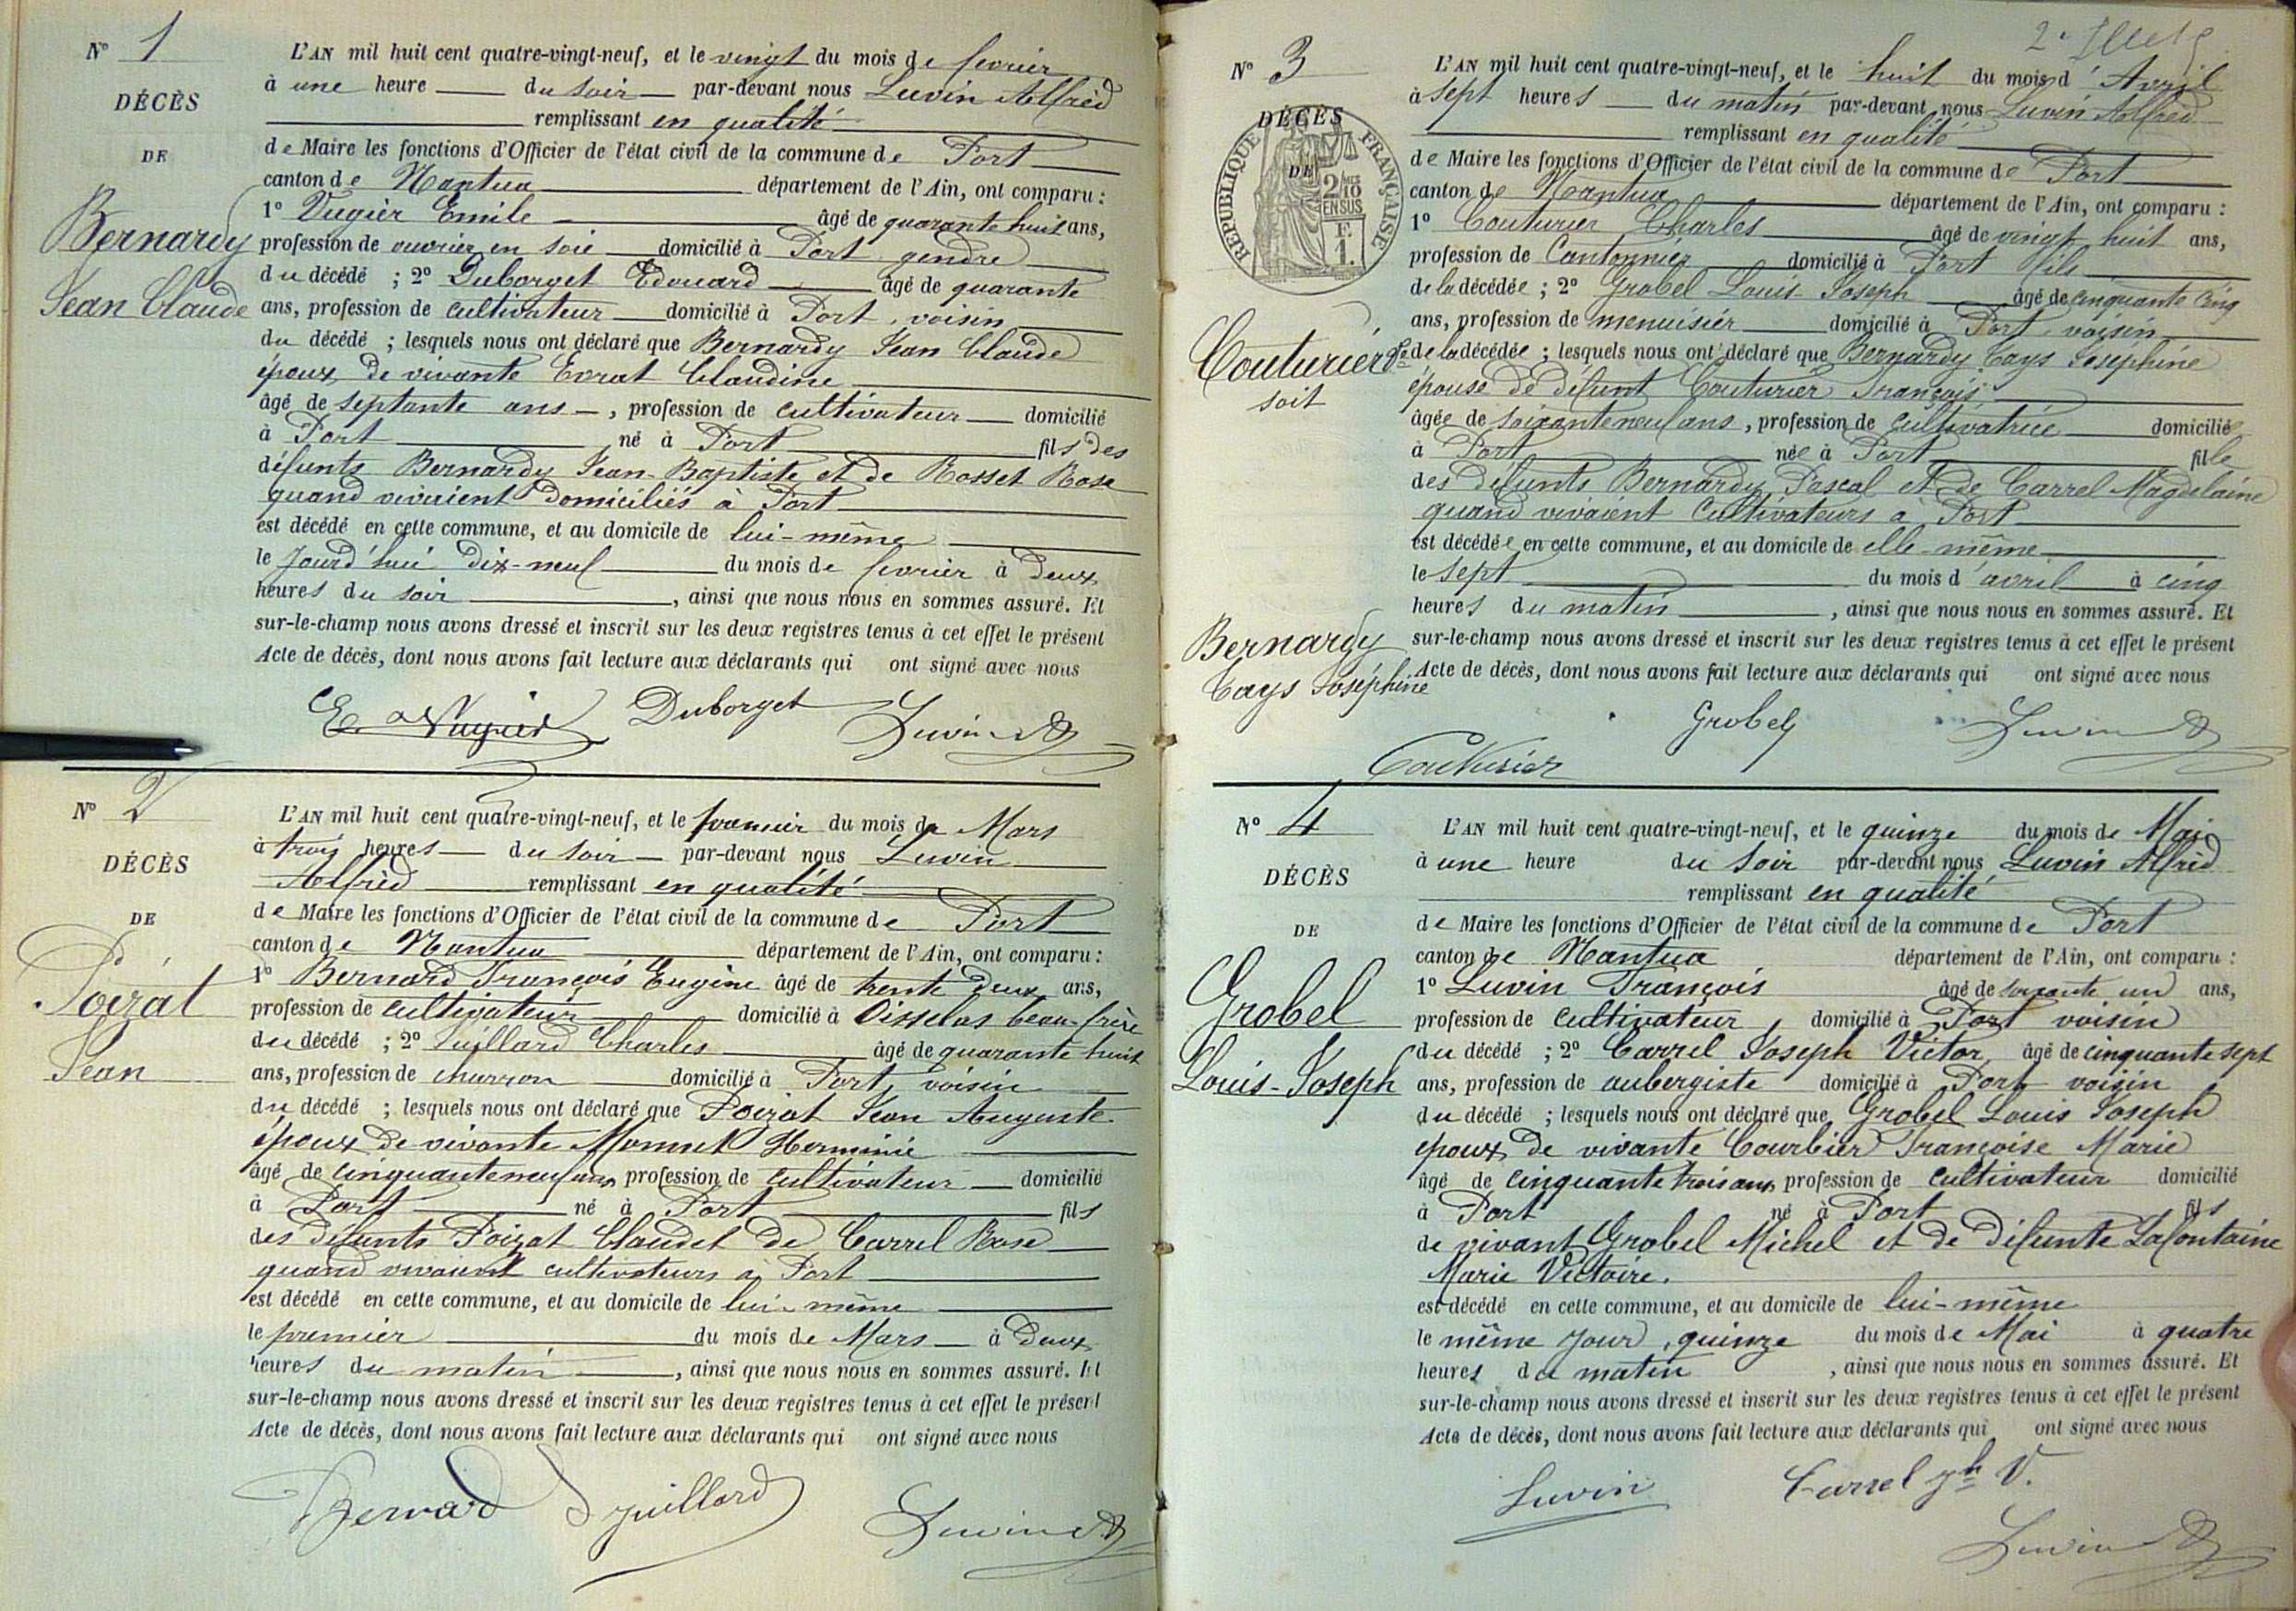 N° 1
DÉCÈS
DE
Bernardy
Jean Claude
L'AN mil huit cent quatre-vingt-neuf, et le vingt du mois de fevrier
à une heure du soir par-devant nous Luvin Alfred
remplissant en qualité
de Maire les fonctions d'Officier de l'état civil de la commune de Port
canton de Nantua département de l'Ain, ont comparu :
1° Vugier Emile âgé de quarante huit ans,
profession de ouvrier en soie domicilié à Port gendre
du décédé ; 2° Duborget Edouard âgé de quarante
ans, profession de cultivateur domicilié à Port, voisin
du décédé ; lesquels nous ont déclaré que Bernardy Jean Claude
époux de vivante Evrat Claudine
âgé de septante ans, profession de cultivateur domicilié
à Port né à Port fils des
défunts Bernardy Jean-Baptiste et de Rosset Rose
quand vivaient Domiciliés à Port
est décédé en cette commune, et au domicile de lui-même
le jourd'hui dix-neuf du mois de fevrier à Deux
heures du soir, ainsi que nous nous en sommes assuré. Et
sur-le-champ nous avons dressé et inscrit sur les deux registres tenus à cet effet le présent
Acte de décès, dont nous avons fait lecture aux déclarants qui ont signé avec nous
E. Vugier Duborget Luvin A
N° 2
DÉCÈS
DE
Poizat
Jean
L'AN mil huit cent quatre-vingt-neuf, et le premier du mois de Mars
à trois heures du soir par-devant nous Luvin
Alfred remplissant en qualité
de Maire les fonctions d'Officier de l'état civil de la commune de Port
canton de Nantua département de l'Ain, ont comparu :
1° Bernard François Eugène âgé de trente Deux ans,
profession de cultivateur domicilié à beau-frère
du décédé ; 2° Juillard Charles âgé de quarante huit
ans, profession de charron domicilié à Port, voisin
du décédé ; lesquels nous ont déclaré que Poizat Jean Auguste
époux de vivante Monnet Herminie
âgé de cinquante neuf ans, profession de cultivateur domicilié
à Port né à Port fils
des Défunts Poizat Claude et De Carrel Rose
quand vivaient cultivateurs à Port
est décédé en cette commune, et au domicile de lui-même
le premier du mois de Mars à Deux
heures du matin, ainsi que nous nous en sommes assuré. Et
sur-le-champ nous avons dressé et inscrit sur les deux registres tenus à cet effet le présent
Acte de décès, dont nous avons fait lecture aux déclarants qui ont signé avec nous
Bernard Juillard Luvin A
N° 3
DÉCÈS
DE
RÉPUBLIQUE FRANÇAISE
2/10 EN SUS
Couturier
soit
Bernardy
Cays Joséphine
L'AN mil huit cent quatre-vingt-neuf, et le huit du mois d'Avril
à sept heures du matin par-devant nous Luvin Alfred
remplissant en qualité
de Maire les fonctions d'Officier de l'état civil de la commune de Port
canton de Nantua département de l'Ain, ont comparu :
1° Couturier Charles âgé de vingt huit ans,
profession de Cantonnier domicilié à Port fils
de la décédée ; 2° Grobel Louis Joseph âgé de cinquante cinq
ans, profession de menuisier domicilié à Port, voisin
de la décédée ; lesquels nous ont déclaré que Bernardy Cays Joséphine
épouse de défunt Couturier François
âgée de soixante neuf ans, profession de cultivatrice domiciliée
à Port née à Port fille
des Défunts Bernardy Pascal et De Carrel Magdelaine
quand vivaient cultivateurs à Port
est décédée en cette commune, et au domicile de elle-même
le sept du mois d'avril à cinq
heures du matin, ainsi que nous nous en sommes assuré. Et
sur-le-champ nous avons dressé et inscrit sur les deux registres tenus à cet effet le présent
Acte de décès, dont nous avons fait lecture aux déclarants qui ont signé avec nous
Couturier Grobel Luvin A
N° 4
DÉCÈS
DE
Grobel
Louis-Joseph
L'AN mil huit cent quatre-vingt-neuf, et le quinze du mois de Mai
à une heure du soir par-devant nous Luvin Alfred
remplissant en qualité
de Maire les fonctions d'Officier de l'état civil de la commune de Port
canton de Nantua département de l'Ain, ont comparu :
1° Luvin François âgé de soixante un ans,
profession de cultivateur, domicilié à Port voisin
du décédé ; 2° Carrel Joseph Victor, âgé de cinquante sept
ans, profession de aubergiste domicilié à Port voisin
du décédé ; lesquels nous ont déclaré que Grobel Louis Joseph
époux De vivante Courbier Françoise Marie
âgé de cinquante trois ans, profession de cultivateur domicilié
à Port né à Port fils
de vivant Grobel Michel et de Défunte Lafontaine
Marie Victoire.
est décédé en cette commune, et au domicile de lui-même
le même jour, quinze du mois de Mai à quatre
heures du matin, ainsi que nous nous en sommes assuré. Et
sur-le-champ nous avons dressé et inscrit sur les deux registres tenus à cet effet le présent
Acte de décès, dont nous avons fait lecture aux déclarants qui ont signé avec nous
Luvin Carrel jh V.
Luvin A